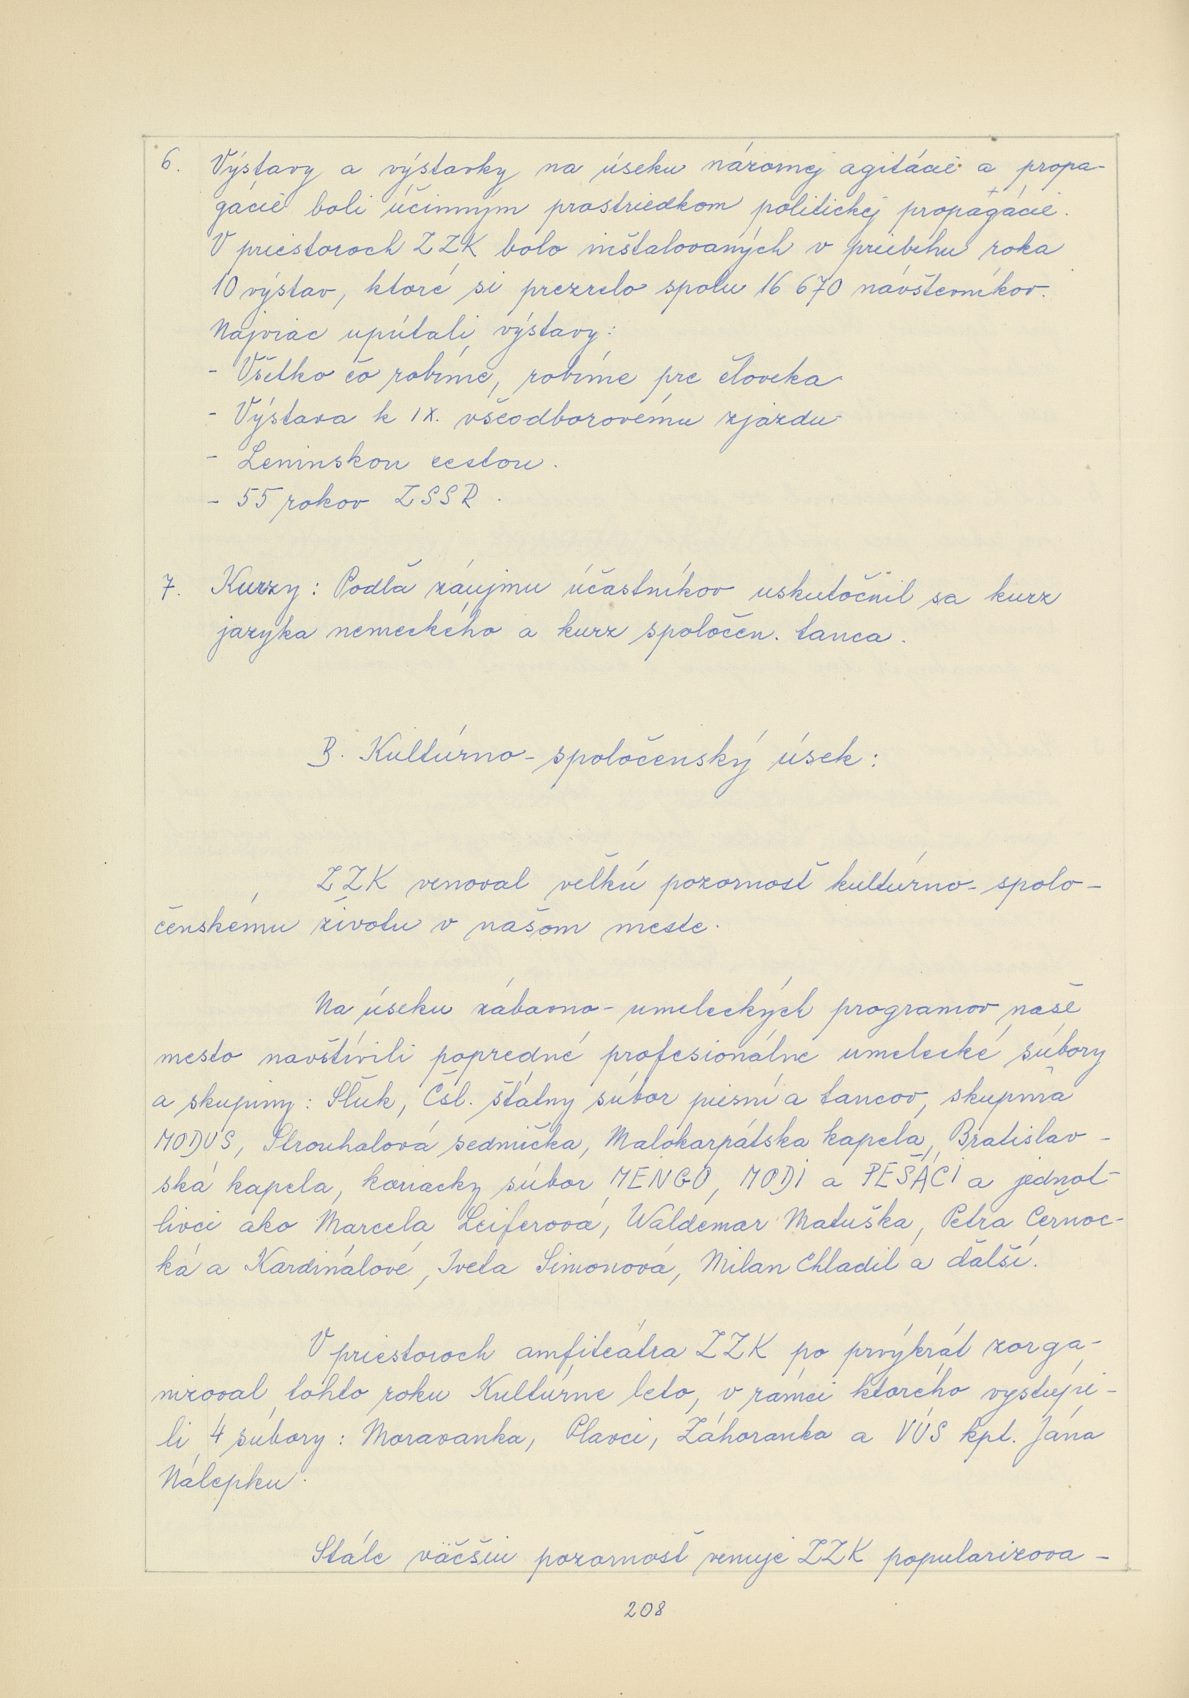 6. Výstavy a výstavky na úseku názornej agitácie a propa-
gácie boli účinným prostriedkom politickej propagácie.
V priestoroch ZZK bolo inštalovaných v priebehu roka
10 výstav, ktoré si prezrelo spolu 16 670 návštevníkov.
Najviac upútali výstavy:
- Všetko čo robíme, robíme pre človeka
- Výstava k IX. všeodborovému zjazdu
- Leninskou cestou.
- 55 rokov ZSSR.
7. Kurzy: Podľa záujmu účastníkov uskutočnil sa kurz
jazyka nemeckého a kurz spoločen. tanca.
B. Kultúrno-spoločenský úsek:
ZZK venoval veľkú pozornosť kultúrno-spolo-
čenskému životu v našom meste.
Na úseku zábavno-umeleckých programov naše
mesto navštívili popredné profesionálne umelecké súbory
a skupiny: Sľuk, Čsl. štátny súbor piesní a tancov, skupina
MODUS, Strouhalová sedmička, Malokarpatska kapela, Bratislav-
ská kapela, koriacky súbor MENGO, MODI a PEŠÁCI a jednot-
livci ako Marcela Leiferová, Waldemar Matuška, Petra Černoc-
ká a Kardinálové, Iveta Simonová, Milan Chladil a ďalší.
V priestoroch amfiteátra ZZK po prvýkrát zorga-
nizoval tohto roku Kultúrne leto, v rámci ktorého vystúpi-
li 4 súbory: Moravanka, Plavci, Záhoranka a VÚS kpt. Jána
Nálepku.
Stále väčšiu pozornosť venuje ZZK popularizova-
208